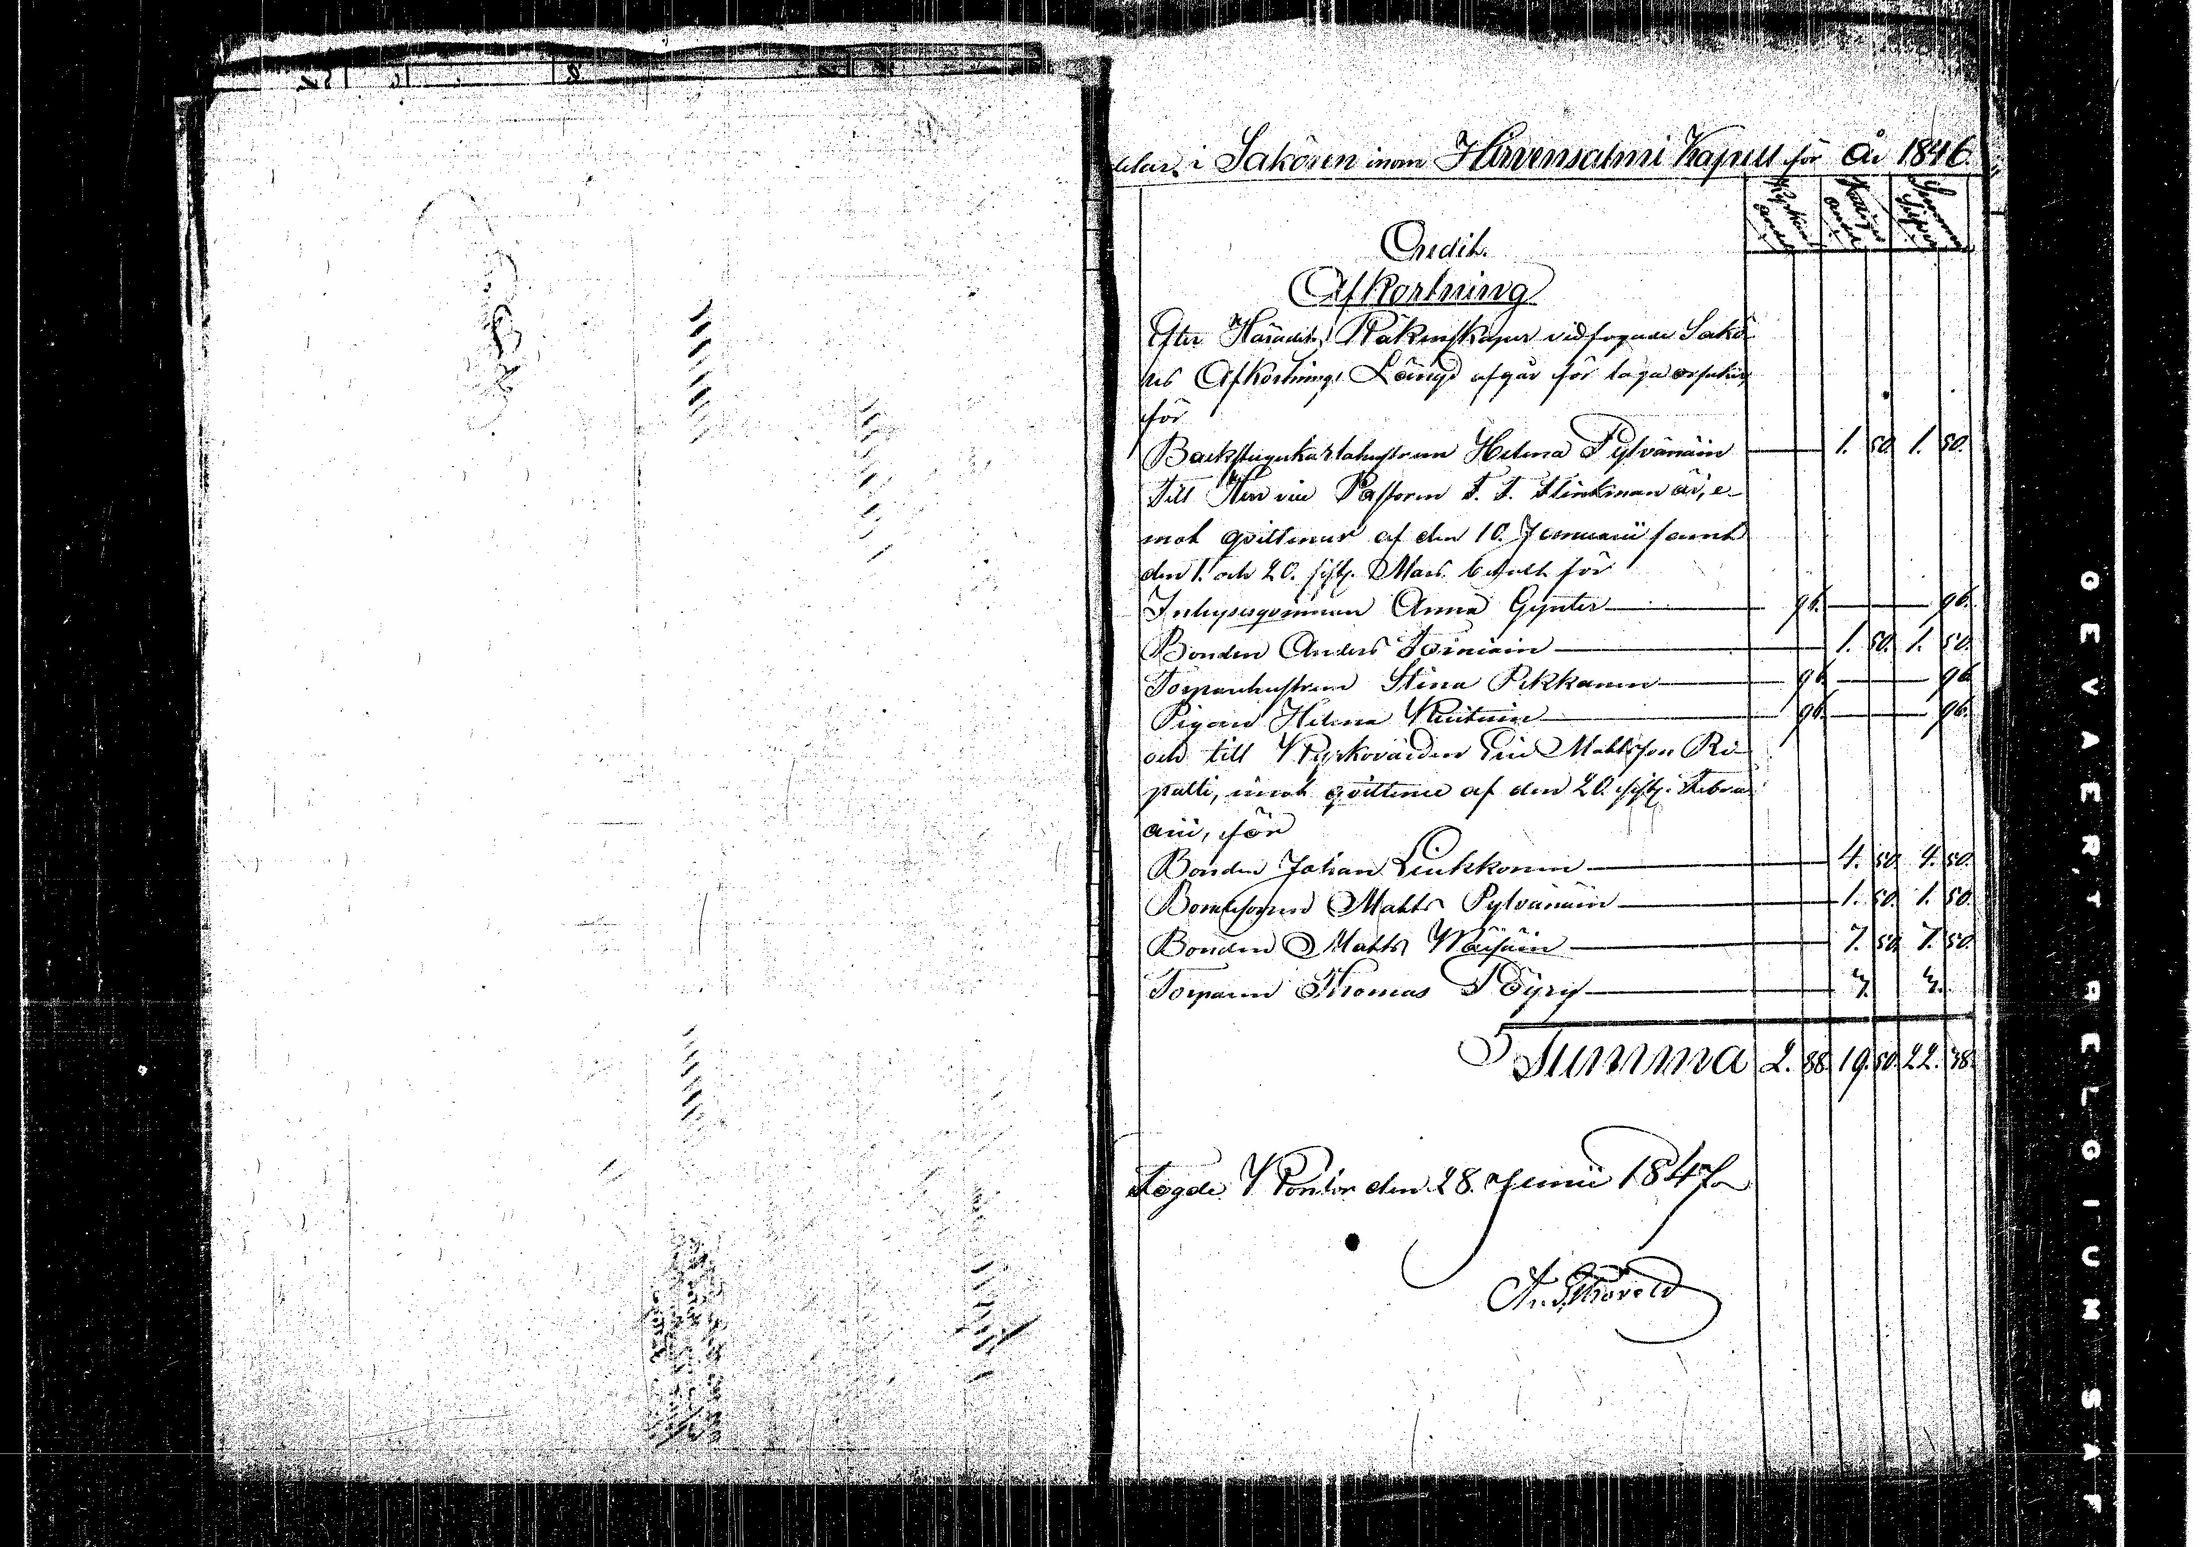 delar i Saköron inom Hirvensalmi Kapell för År 1846.
Kyrkans andel Fattiges andel Summa Silfver
Credit.
Afkortning
Efter Häradets Räkenskaper vidfogade Sakö-
res Afkortnings Längd afgår för laga orsaker
för
Backstugukarlahustrun Helena Pylvänäin 1. 50. 1. 50.
Till Herr vice Pastoren F. F. Stinkman är, e-
mot qvittencer af den 10. Januarii samt
den 1. och 20. sistl. Mars betalt för
Inhysesqvinnan Anna Gynter 96. 96.
Bonden Anders Toiniain 1. 50. 1. 50.
Torparehustrun Stina Pekkanen 96 96
Pigan Helena Kuitunin 96. 96.
och till Kyrkovärden Eric Mattsson Ri-
patti, imot qvittence af den 20. sistl. Febru-
arii, för
Bonden Johan Liukkonen 4. 50. 4. 50.
Bondesonen Matts Pylvänäin 1. 50. 1. 50.
Bonden Matts Väisäin 7. 50. 7. 50.
Torparen Thomas Pöyry 3. 3.
Summa 2. 88. 19. 50. 22. 38.
Fogde Kontor den 28. Junii 1847
GEVAERT BELGIUM SAF